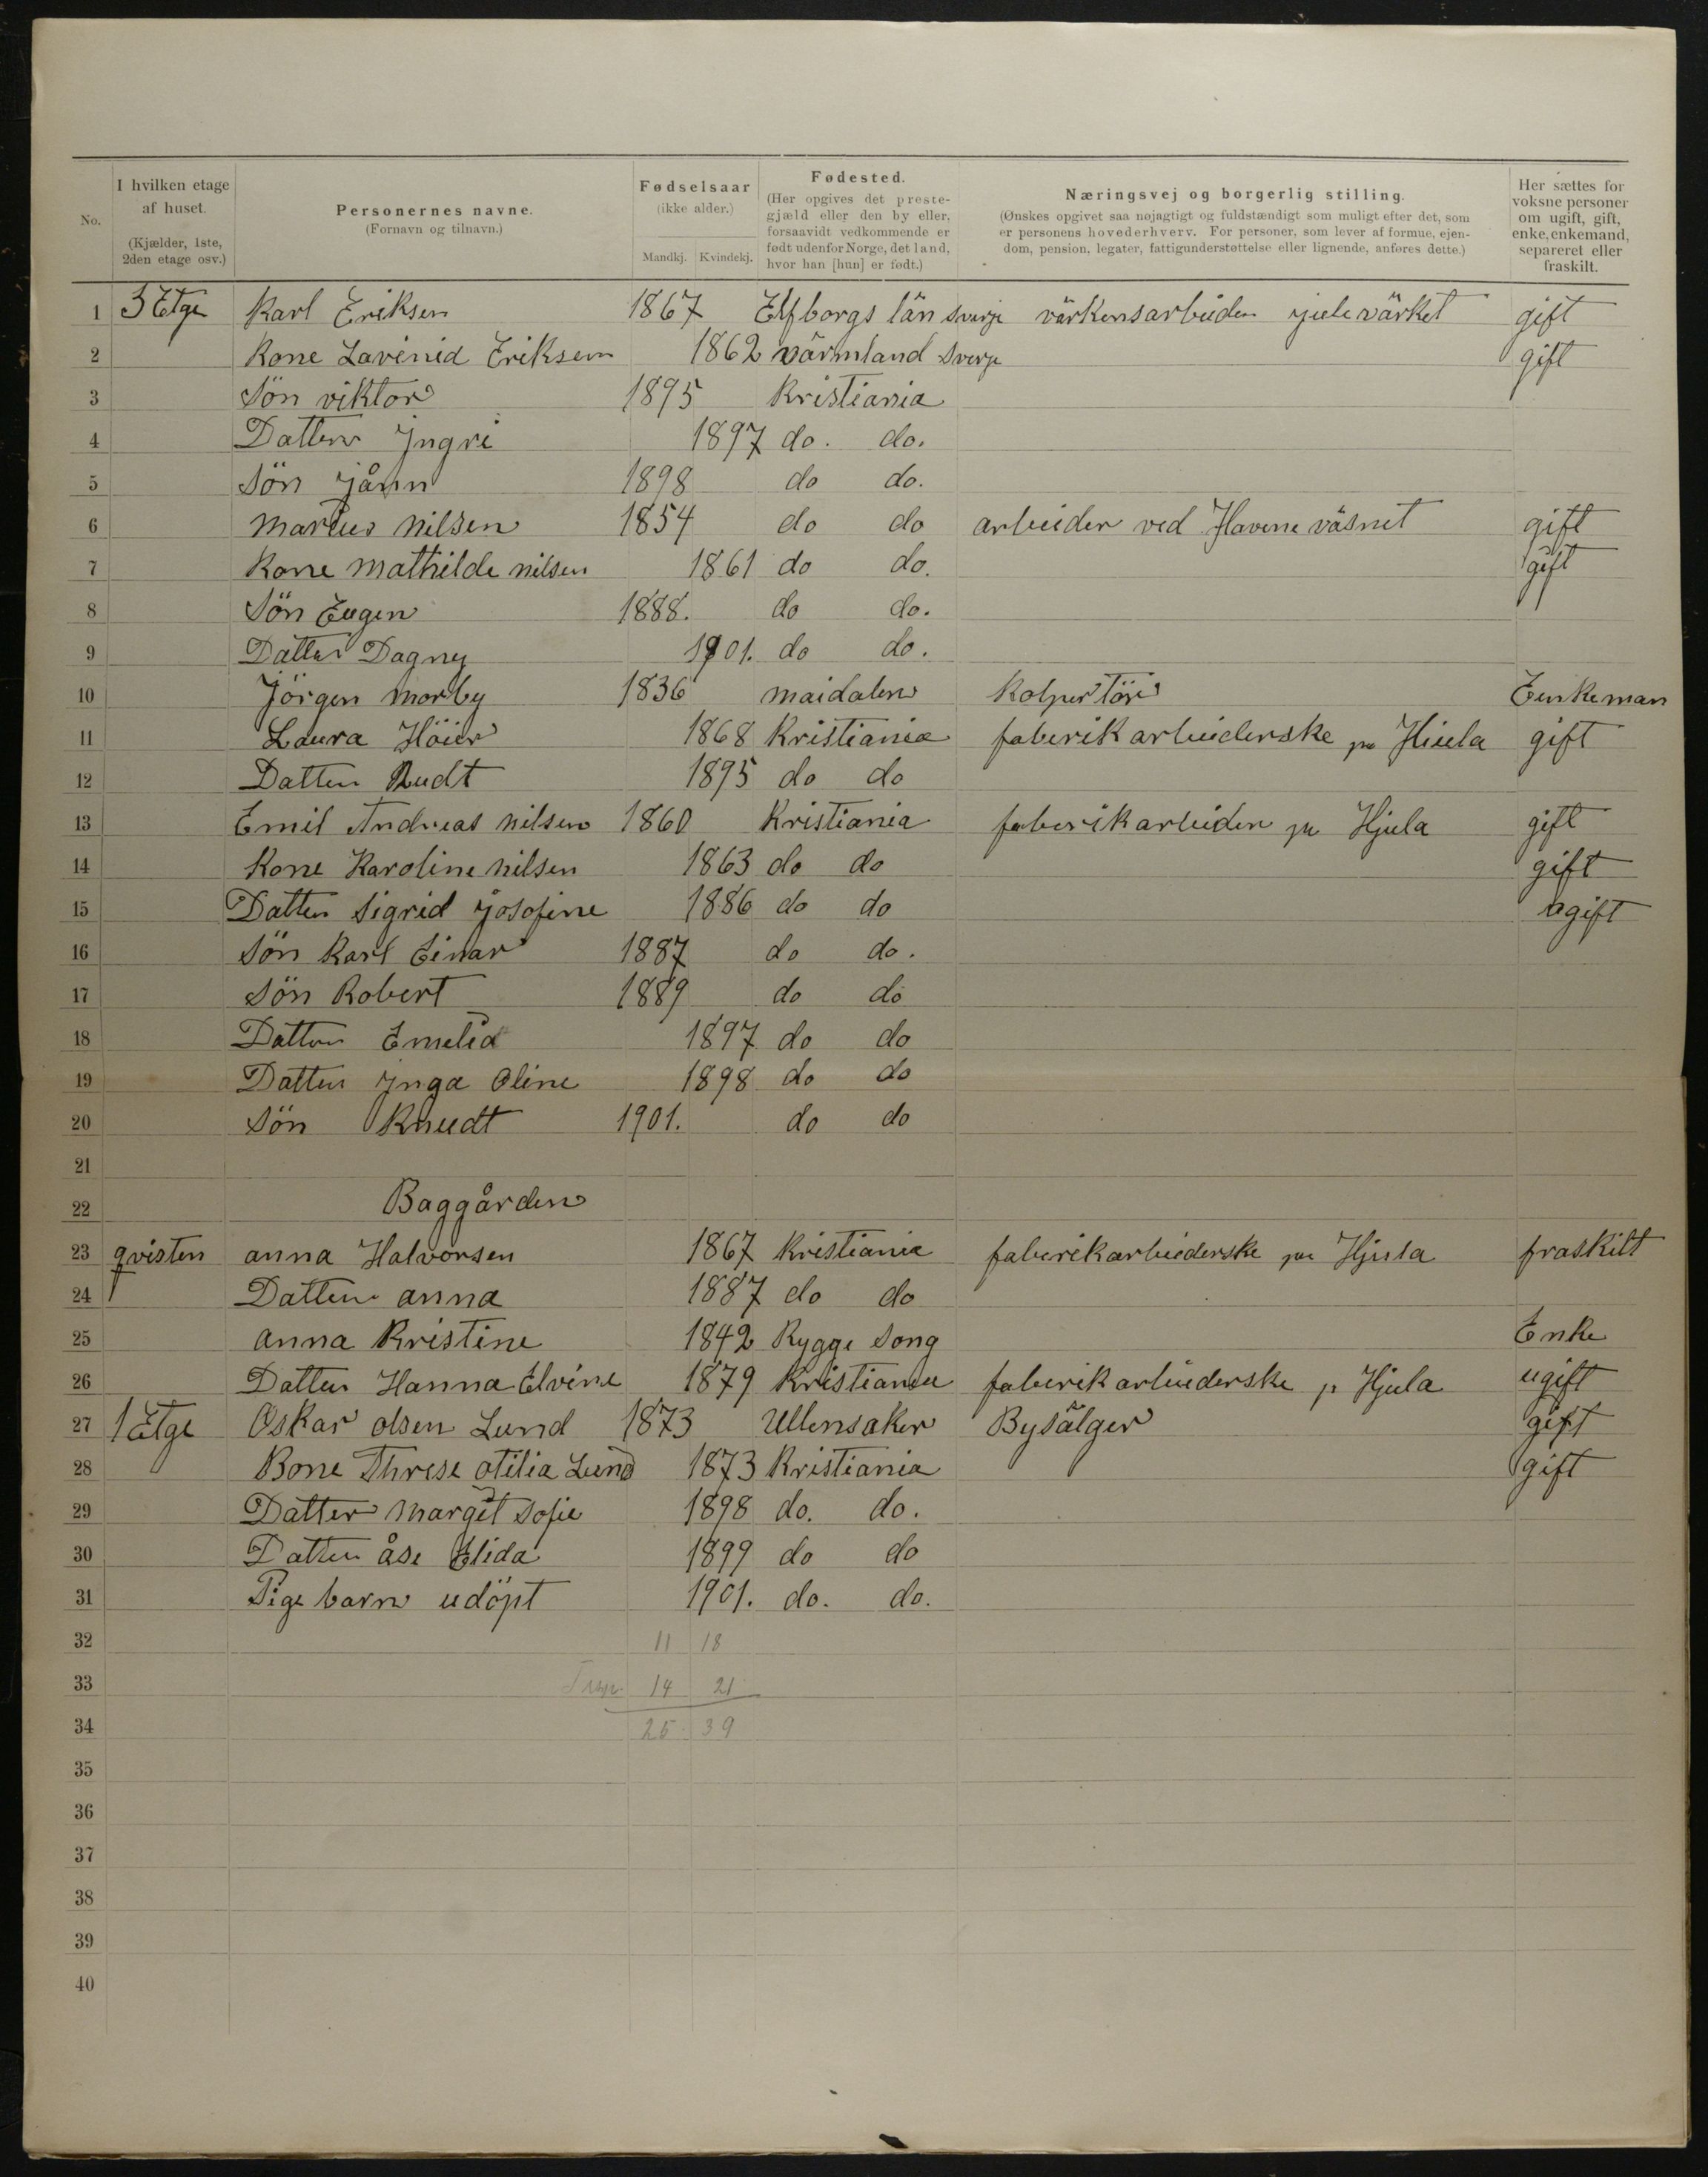 No.
I hvilken etage af huset. (Kjælder, 1ste, 2den etage osv.)
Personernes navne. (Fornavn og tilnavn.)
Fødselsaar (ikke alder.) Mandkj. Kvindekj.
Fødested. (Her opgives det prestegjæld eller den by eller, forsaavidt vedkommende er født udenfor Norge, det land, hvor han [hun] er født.)
Næringsvej og borgerlig stilling. (Ønskes opgivet saa nøjagtigt og fuldstændigt som muligt efter det, som er personens hovederhverv. For personer, som lever af formue, ejendom, pension, legater, fattigunderstøttelse eller lignende, anføres dette.)
Her sættes for voksne personer om ugift, gift, enke, enkemand, separeret eller fraskilt.
1 3 Etge Karl Eriksen 1867 Elfborgs län Sverje värkensarbeider julevärket gift
2 Kone Lavinid Eriksen 1862 värmland Sverje gift
3 Sön viktor 1895 Kristiania
4 Datter Jngri 1897 do. do.
5 Sön jånn 1898 do do.
6 Marius Nilsen 1854 do do arbeider ved Havene väsnet gift
7 Kone Mathilde nilsen 1861 do do. gift
8 Sön Eugen 1888. do do.
9 Datter Dagny 1901. do do.
10 Jörgen Morby 1836 maidalen Kolpertör Eenkeman
11 Laura Höier 1868 Kristiania faberikarbeiderske pa Hiula gift
12 Datter Rudt 1895 do do
13 Emil Andreas Nilsen 1860 Kristiania faberikarbeider pa Hjula gift
14 Kone Karoline Nilsen 1863 do do gift
15 Datter Sigrid josofine 1886 do do ugift
16 Sön Karl Einar 1887 do do.
17 Sön Robert 1889 do do
18 Datter Emelia 1897 do do
19 Datter Jnga Oline 1898 do do
20 Sön Knudt 1901. do do
21
22 Baggården
23 qvisten anna Halvorsen 1867 Kristiania faberikarbeiderske pa Hjula fraskilt
24 Datter anna 1887 do do
25 anna Kristine 1842 Rygge Song Enke
26 Datter Hanna Elvine 1879 Kristiania faberikarbeiderske p Hjula ugift
27 1 Etge Oskar olsen Lund 1873 Ullensaker Bysälger gift
28 Kone Threse otilia Lund 1873 Kristiania gift
29 Datter Margit Sofie 1898 do. do.
30 Datter åse Elida 1899 do do
31 Pige barn udöpt 1901. do. do.
32 11 18
33 14 21
34 25 39
35
36
37
38
39
40